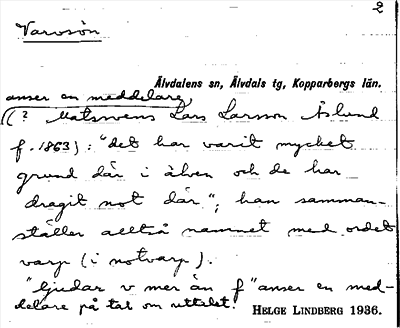 2
Varvsön
Älvdalens sn, Älvdals tg, Kopparbergs län.
anser en meddelare,
(? Matsvens Lars Larsson Åslund
f. 1863): "det har varit mycket
grund där i älven och de har
dragit not där"; han samman-
ställer alltså namnet med ordet
varp (i notvarp).
"ljudar v mer än f" anser en med-
delare på tal om uttalet.
HELGE LINDBERG 1936.